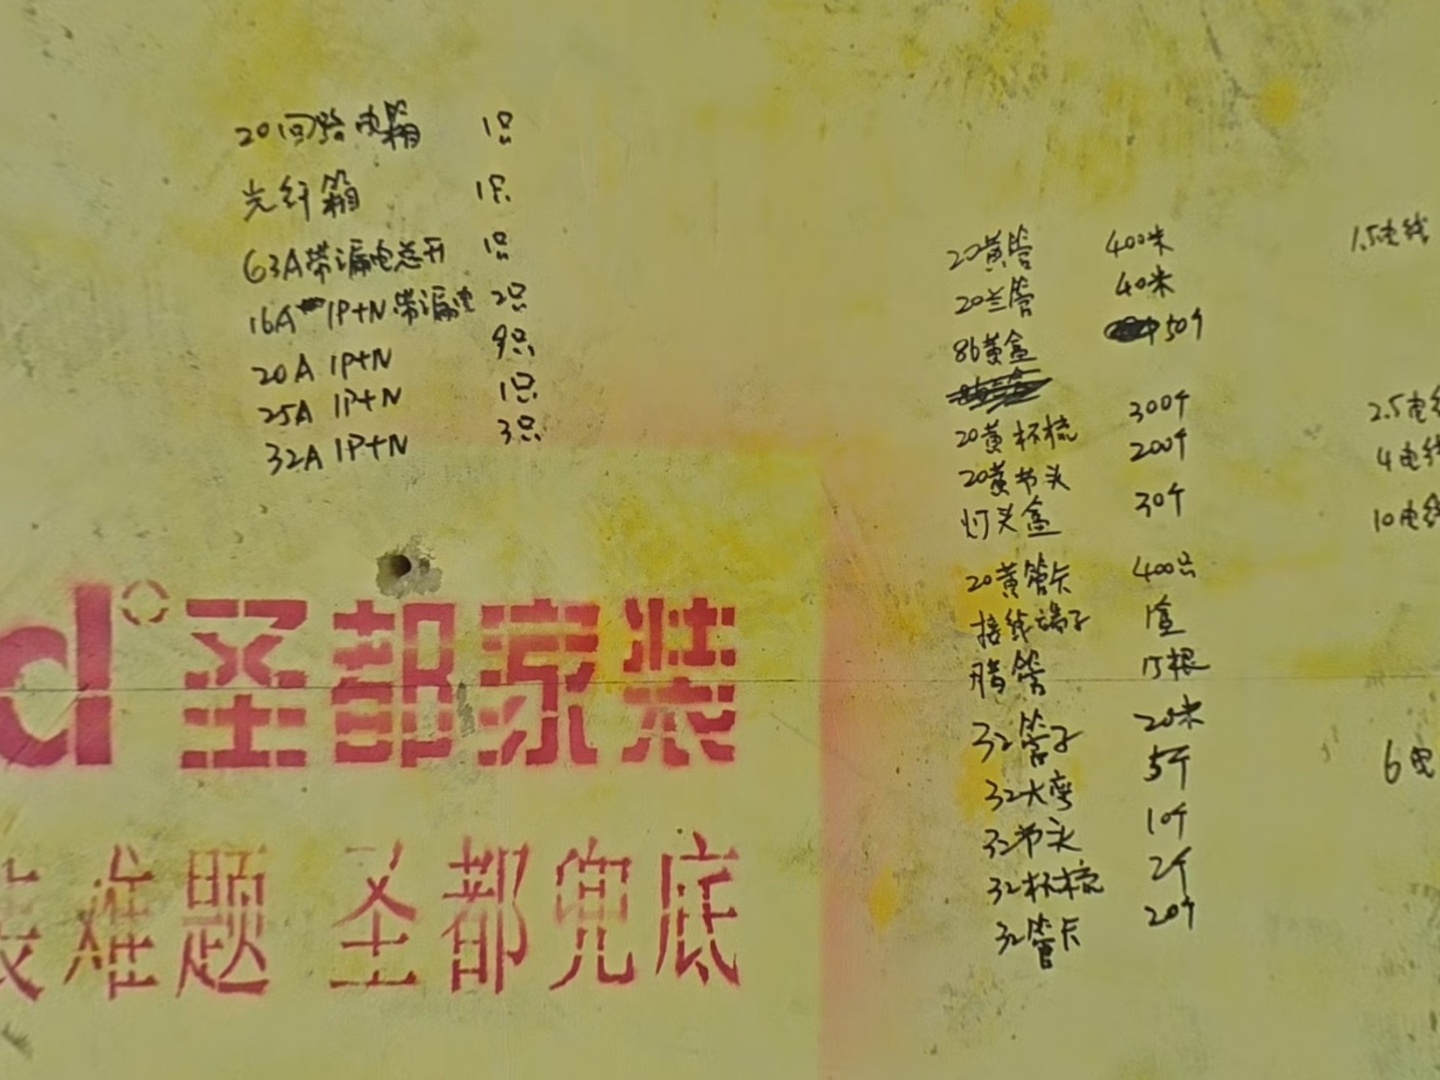 20回路电箱 1只
光纤箱 1只
63A带漏电总开 1只
16A 1P+N带漏电 2只
20A 1P+N 9只
25A 1P+N 1只
32A 1P+N 3只
20黄管 400米
20兰管 40米
86黄盒 50个
20黄杯梳 300个
20黄节头 200个
灯头盒 30个
20黄管卡 400只
接线端子 1盒
腊管 15根
32管子 20米
32大弯 5个
32节头 10个
32杯梳 2个
32管卡 20个
1.5电线
2.5电线
4电线
10电线
6电
d 圣都家装
装难题 圣都兜底